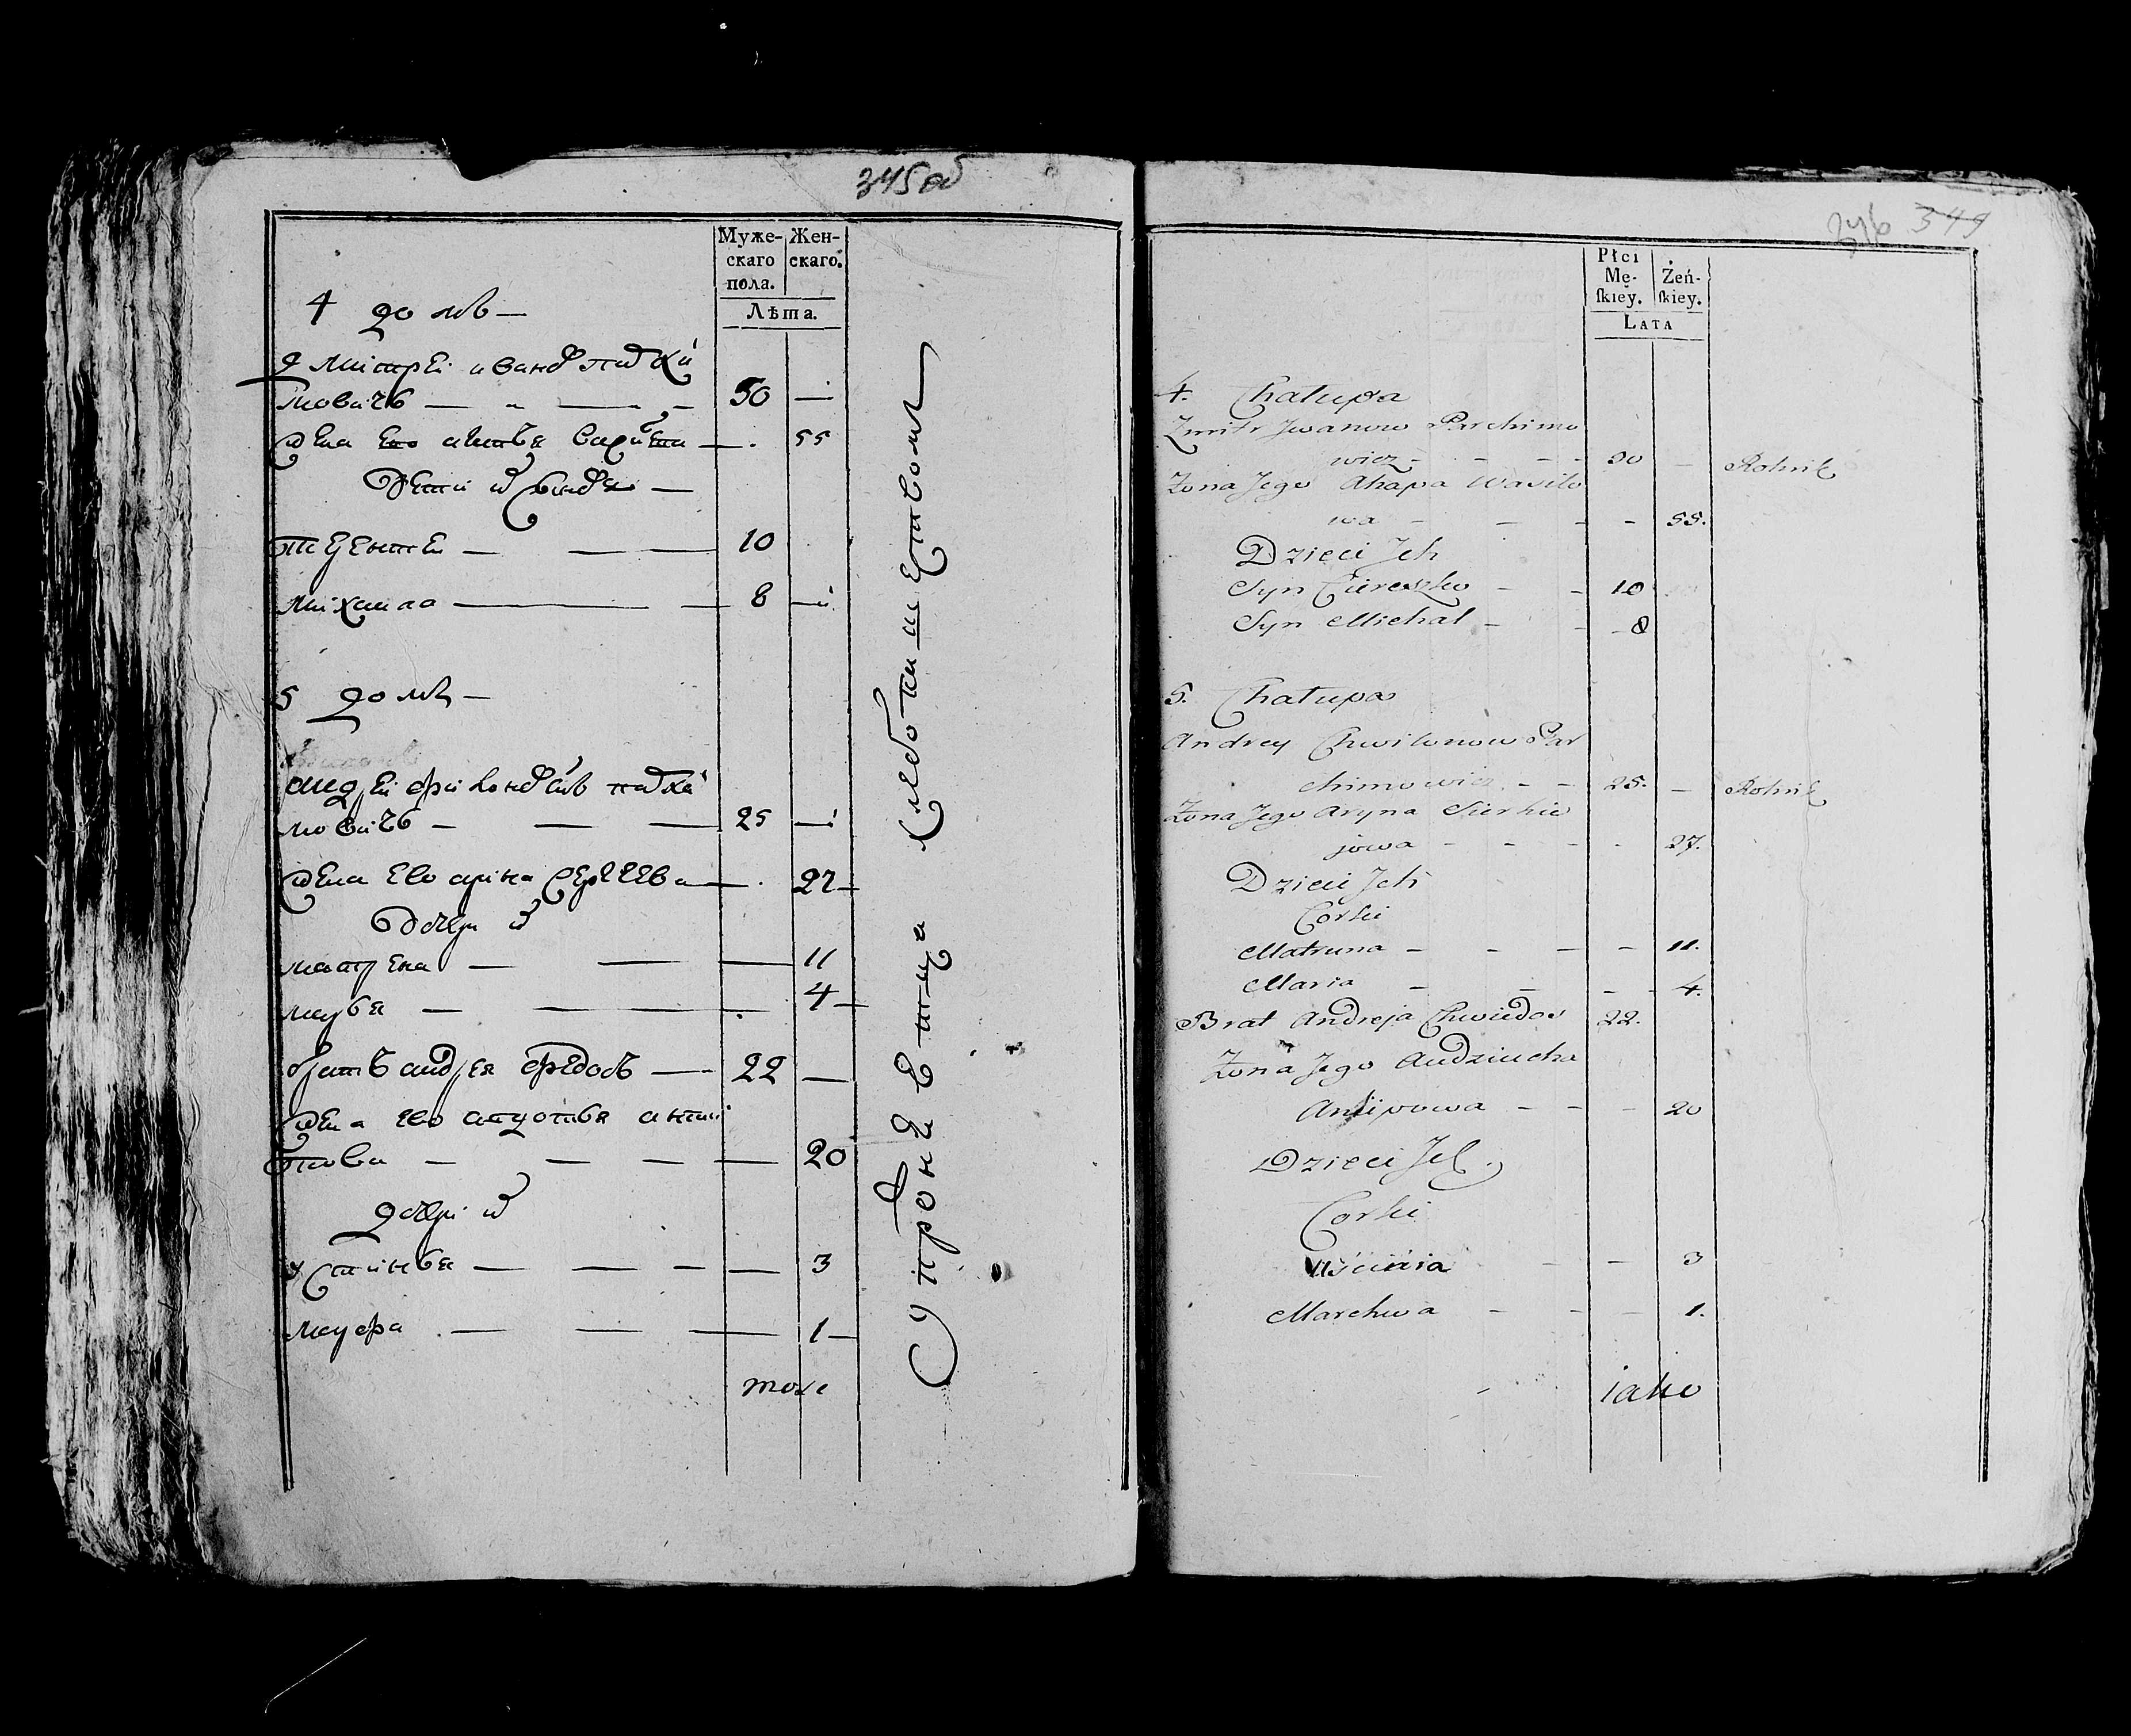 345 об
Муже-
скаго
пола.
Жен-
скаго.
Лѣта.
4 домъ —
Дмитрей ивановъ пархи
мовичъ — 50 —
жена его агапья
Дети их сыновья —
терентей — 10
михаила — 8 —
5 домъ —
андрей филоновъ сынъ пархи
мовичъ — 25 —
жена его арина сергеева — 27 —
дочери их
матрена — 11
марья — 4 —
братъ андрея федоръ — 22 —
жена его авдотья анти
пова — 20
дочери их
устинья — 3
марфа — 1 —
тоже
349
Płci
Mę-
ſkiey.
Żeń-
ſkiey.
Lata
4. Chałupa
Zmitr Jwanow Parchimo
wicz - - - 50 — Rolnik
Żona Jego Ahapa Wasilo
wa - - - - 55.
Dzieci Jch
Syn Ciereszko - - 10
Syn Michał - - 8
5. Chałupa
Andrey Chwilonow Par
chimowicz - - 25. — Rolnik
Żona Jego Aryna Sierhie
jowa - - - - 27.
Dzieci Jch
Corki
Matruna - - - - 11.
Maria - - - - 4.
Brat Andreja Chwiedor 22.
Żona Jego Audziucha
Antipowa - - - 20
Dzieci Jch
Corki
Uścinia - - 3
Marchwa - - - 1.
iako